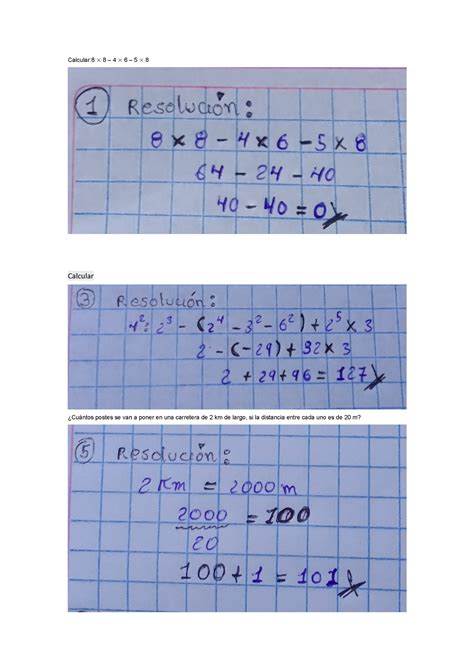 Calcular:8 × 8 – 4 × 6 – 5 × 8
1 Resolución:
8 × 8 – 4 × 6 – 5 × 8
64 – 24 – 40
40 – 40 = 0
Calcular
3 Resolución:
4²: 2³ – (2⁴ – 3² – 6²) + 2⁵ × 3
2 – (–29) + 32 × 3
2 + 29 + 96 = 127
¿Cuántos postes se van a poner en una carretera de 2 km de largo, si la distancia entre cada uno es de 20 m?
5 Resolución:
2 Km = 2000 m
2000 = 100
20
100 + 1 = 101